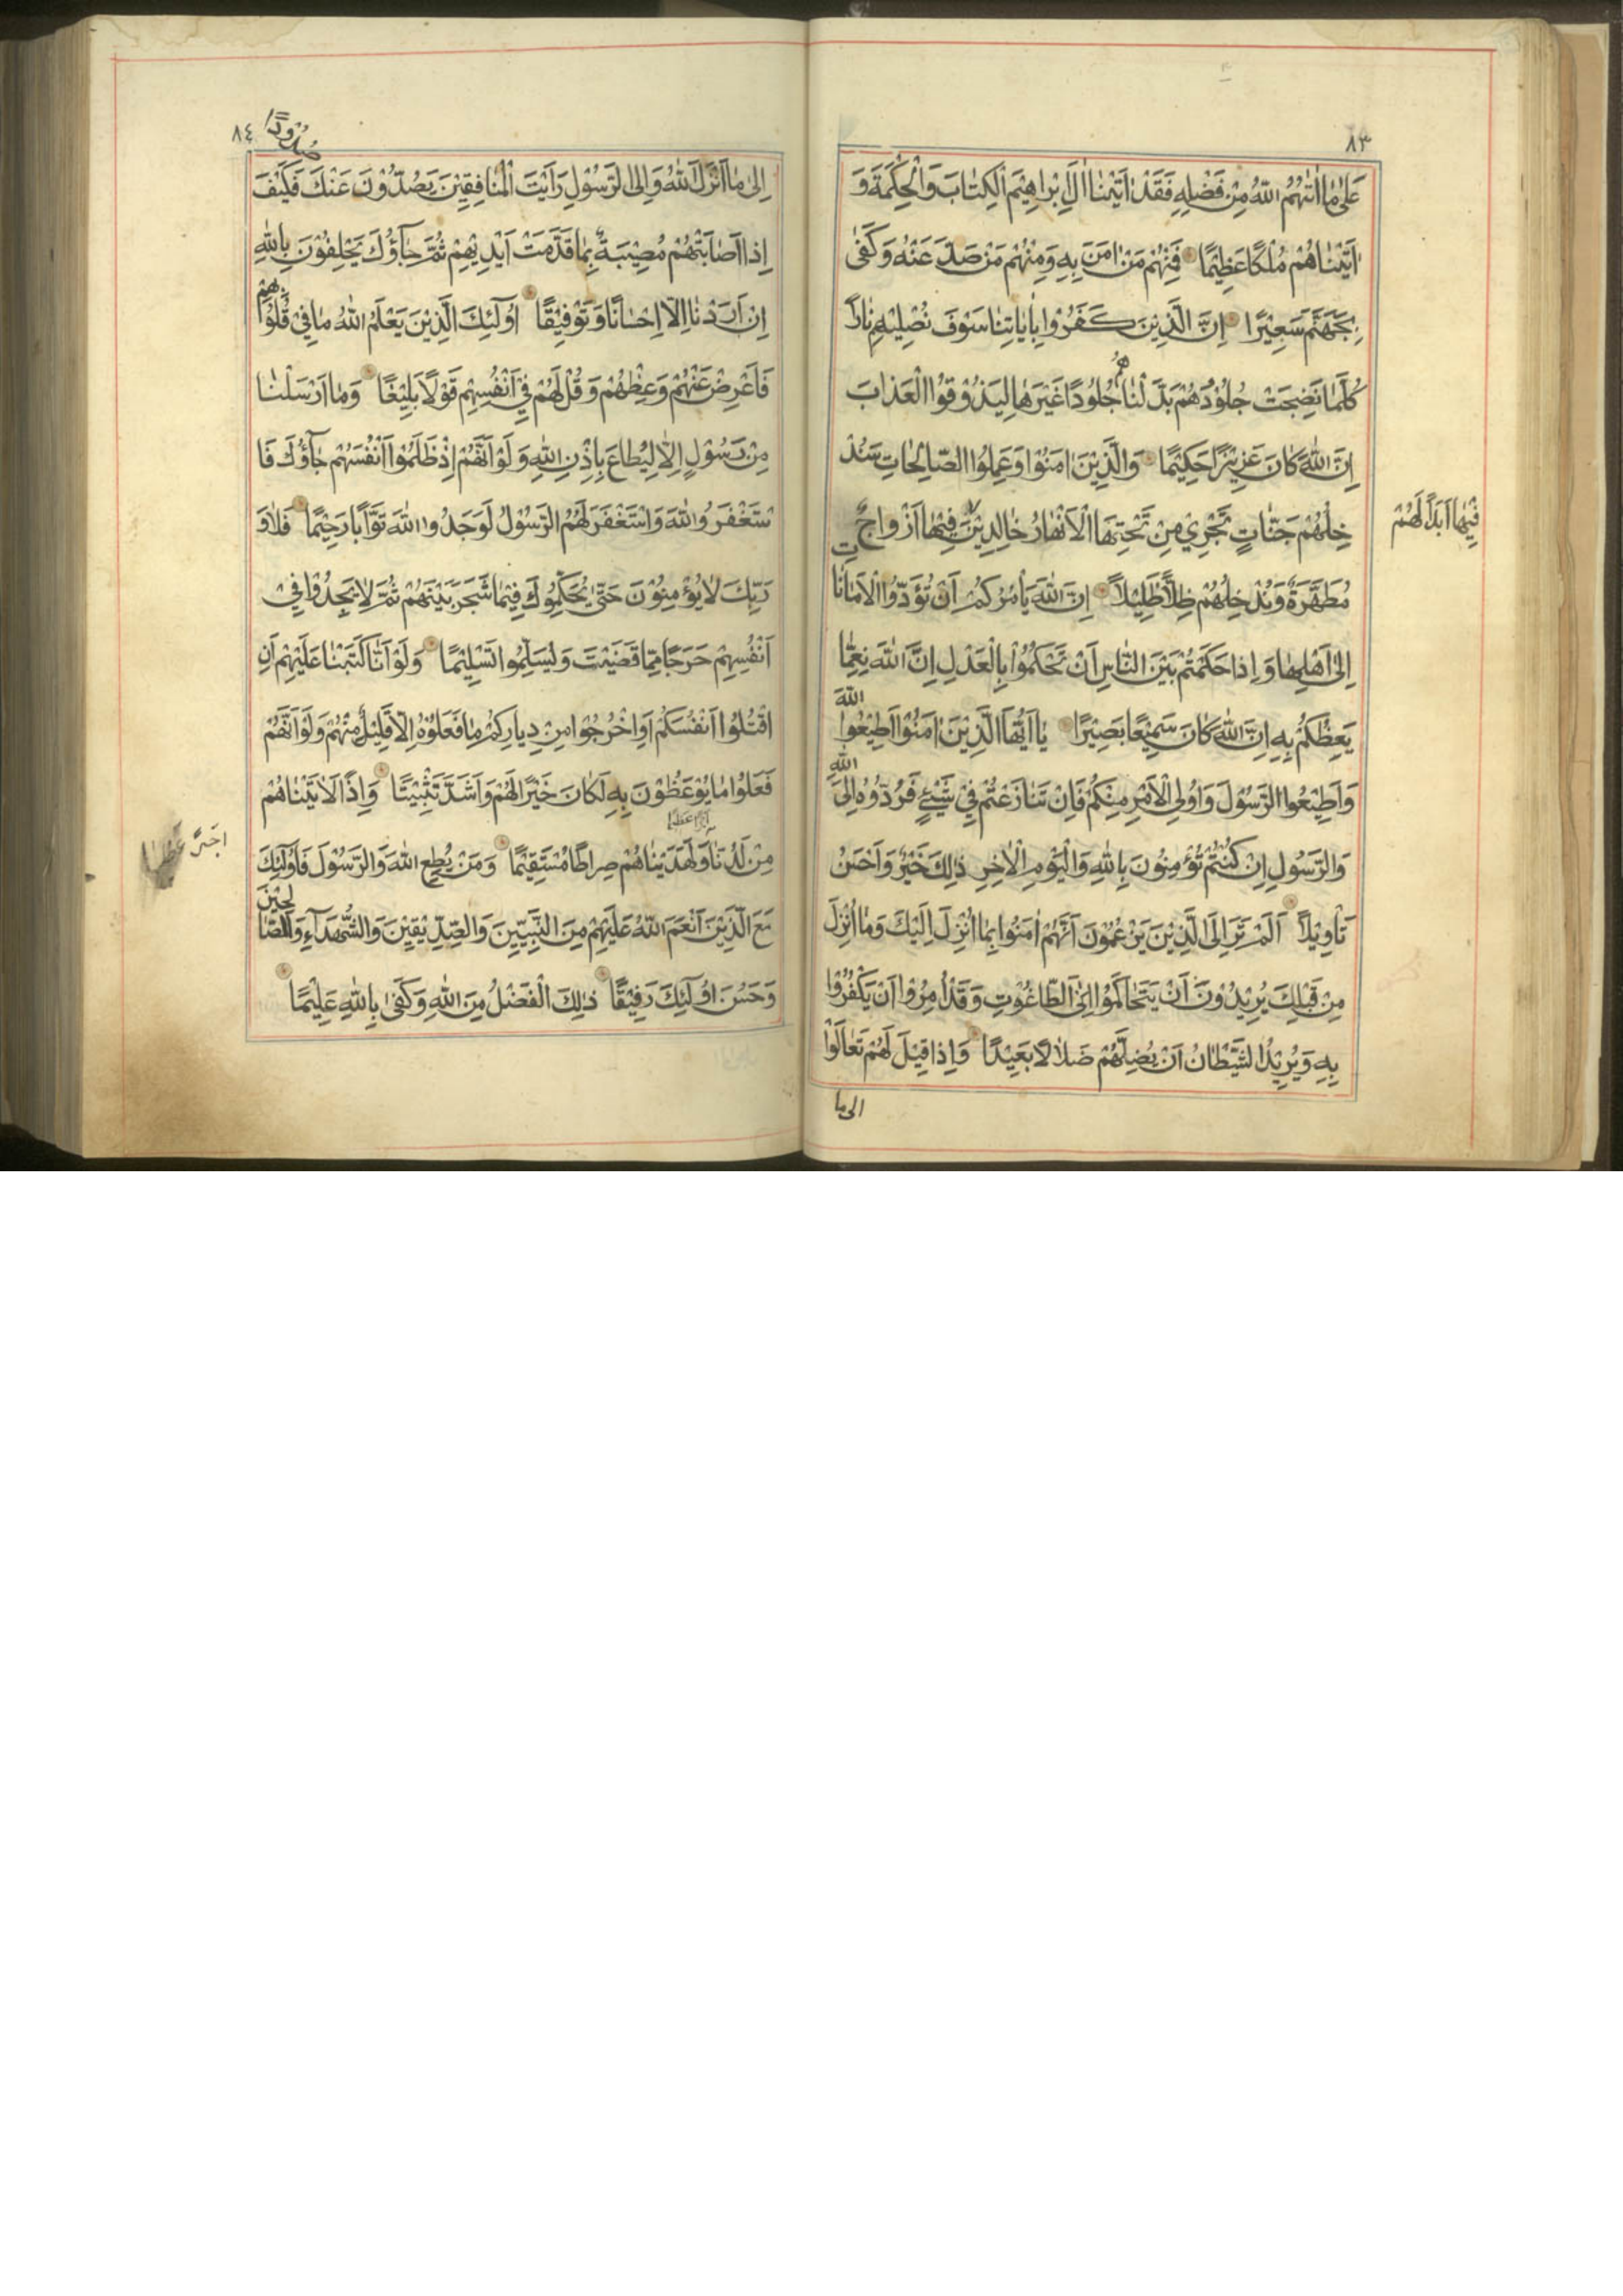 ٨٣
عَلىٰ مَا اٰتٰهُمُ اللّٰهُ مِنْ فَضْلِهِ فَقَدْ اٰتَيْنَا اٰلَ اِبْرٰاهِيْمَ الْكِتٰابَ وَالْحِكْمَةَ وَ
اٰتَيْنٰاهُمْ مُلْكًا عَظِيْمًا فَمِنْهُمْ مَنْ اٰمَنَ بِهِ وَمِنْهُمْ مَنْ صَدَّ عَنْهُ وَكَفىٰ
بِجَهَنَّمَ سَعِيْرًا اِنَّ الَّذِيْنَ كَفَرُوْا بِاٰيٰاتِنٰا سَوْفَ نُصْلِيْهِمْ نٰارًا
كُلَّمٰا نَضِجَتْ جُلُوْدُهُمْ بَدَّلْنٰاهُمْ جُلُوْدًا غَيْرَهٰا لِيَذُوْقُوا الْعَذٰابَ
اِنَّ اللّٰهَ كٰانَ عَزِيْزًا حَكِيْمًا وَالَّذِيْنَ اٰمَنُوْا وَعَمِلُوا الصّٰالِحٰاتِ سَنُدْ
خِلُهُمْ جَنّٰاتٍ تَجْرِيْ مِنْ تَحْتِهَا الْاَنْهٰارُ خٰالِدِيْنَ فِيْهٰا اَزْوٰاجٌ
فِيْهٰا اَبَدًا لَهُمْ
مُطَهَّرَةٌ وَنُدْخِلُهُمْ ظِلًّا ظَلِيْلًا اِنَّ اللّٰهَ يَأْمُرُكُمْ اَنْ تُؤَدُّوا الْاَمٰانٰاتِ
اِلىٰ اَهْلِهٰا وَاِذٰا حَكَمْتُمْ بَيْنَ النّٰاسِ اَنْ تَحْكُمُوْا بِالْعَدْلِ اِنَّ اللّٰهَ نِعِمّٰا
يَعِظُكُمْ بِهِ اِنَّ اللّٰهَ كٰانَ سَمِيْعًا بَصِيْرًا يٰا اَيُّهَا الَّذِيْنَ اٰمَنُوْا اَطِيْعُوا اللّٰهَ
وَاَطِيْعُوا الرَّسُوْلَ وَاُولِى الْاَمْرِ مِنْكُمْ فَاِنْ تَنٰازَعْتُمْ فِيْ شَيْئٍ فَرُدُّوْهُ اِلَى اللّٰهِ
وَالرَّسُوْلِ اِنْ كُنْتُمْ تُؤْمِنُوْنَ بِاللّٰهِ وَالْيَوْمِ الْاٰخِرِ ذٰلِكَ خَيْرٌ وَاَحْسَنُ
تَأْوِيْلًا اَلَمْ تَرَ اِلَى الَّذِيْنَ يَزْعُمُوْنَ اَنَّهُمْ اٰمَنُوْا بِمٰا اُنْزِلَ اِلَيْكَ وَمٰا اُنْزِلَ
مِنْ قَبْلِكَ يُرِيْدُوْنَ اَنْ يَتَحٰاكَمُوْا اِلَى الطّٰاغُوْتِ وَقَدْ اُمِرُوْا اَنْ يَكْفُرُوْا
بِهِ وَيُرِيْدُ الشَّيْطٰانُ اَنْ يُضِلَّهُمْ ضَلٰالًا بَعِيْدًا وَاِذٰا قِيْلَ لَهُمْ تَعٰالَوْا
الى ما
٨٤
اِلىٰ مٰا اَنْزَلَ اللّٰهُ وَاِلَى الرَّسُوْلِ رَاَيْتَ الْمُنٰافِقِيْنَ يَصُدُّوْنَ عَنْكَ صُدُوْدًا فَكَيْفَ
اِذٰا اَصٰابَتْهُمْ مُصِيْبَةٌ بِمٰا قَدَّمَتْ اَيْدِيْهِمْ ثُمَّ جٰآؤُكَ يَحْلِفُوْنَ بِاللّٰهِ
اِنْ اَرَدْنٰا اِلّٰا اِحْسٰانًا وَتَوْفِيْقًا اُولٰئِكَ الَّذِيْنَ يَعْلَمُ اللّٰهُ مٰا فِيْ قُلُوْبِهِمْ
فَاَعْرِضْ عَنْهُمْ وَعِظْهُمْ وَقُلْ لَهُمْ فِيْ اَنْفُسِهِمْ قَوْلًا بَلِيْغًا وَمٰا اَرْسَلْنٰا
مِنْ رَسُوْلٍ اِلّٰا لِيُطٰاعَ بِاِذْنِ اللّٰهِ وَلَوْ اَنَّهُمْ اِذْ ظَلَمُوْا اَنْفُسَهُمْ جٰآؤُكَ فَا
سْتَغْفَرُوا اللّٰهَ وَاسْتَغْفَرَ لَهُمُ الرَّسُوْلُ لَوَجَدُوا اللّٰهَ تَوّٰابًا رَحِيْمًا فَلٰا وَ
رَبِّكَ لٰا يُؤْمِنُوْنَ حَتّىٰ يُحَكِّمُوْكَ فِيْمٰا شَجَرَ بَيْنَهُمْ ثُمَّ لٰا يَجِدُوْا فِيْ
اَنْفُسِهِمْ حَرَجًا مِمّٰا قَضَيْتَ وَيُسَلِّمُوْا تَسْلِيْمًا وَلَوْ اَنّٰا كَتَبْنٰا عَلَيْهِمْ اَنِ
اقْتُلُوْا اَنْفُسَكُمْ اَوِ اخْرُجُوْا مِنْ دِيٰارِكُمْ مٰا فَعَلُوْهُ اِلّٰا قَلِيْلٌ مِنْهُمْ وَلَوْ اَنَّهُمْ
فَعَلُوْا مٰا يُوْعَظُوْنَ بِهِ لَكٰانَ خَيْرًا لَهُمْ وَاَشَدَّ تَثْبِيْتًا وَاِذًا لَاٰتَيْنٰاهُمْ
اجرًا عظيمًا
مِنْ لَدُنّٰا وَلَهَدَيْنٰاهُمْ صِرٰاطًا مُسْتَقِيْمًا وَمَنْ يُطِعِ اللّٰهَ وَالرَّسُوْلَ فَاُولٰئِكَ
اجرًا عظيما
مَعَ الَّذِيْنَ اَنْعَمَ اللّٰهُ عَلَيْهِمْ مِنَ النَّبِيّيْنَ وَالصِّدِّيْقِيْنَ وَالشُّهَدٰآءِ وَالصّٰالِحِيْنَ
وَحَسُنَ اُولٰئِكَ رَفِيْقًا ذٰلِكَ الْفَضْلُ مِنَ اللّٰهِ وَكَفىٰ بِاللّٰهِ عَلِيْمًا